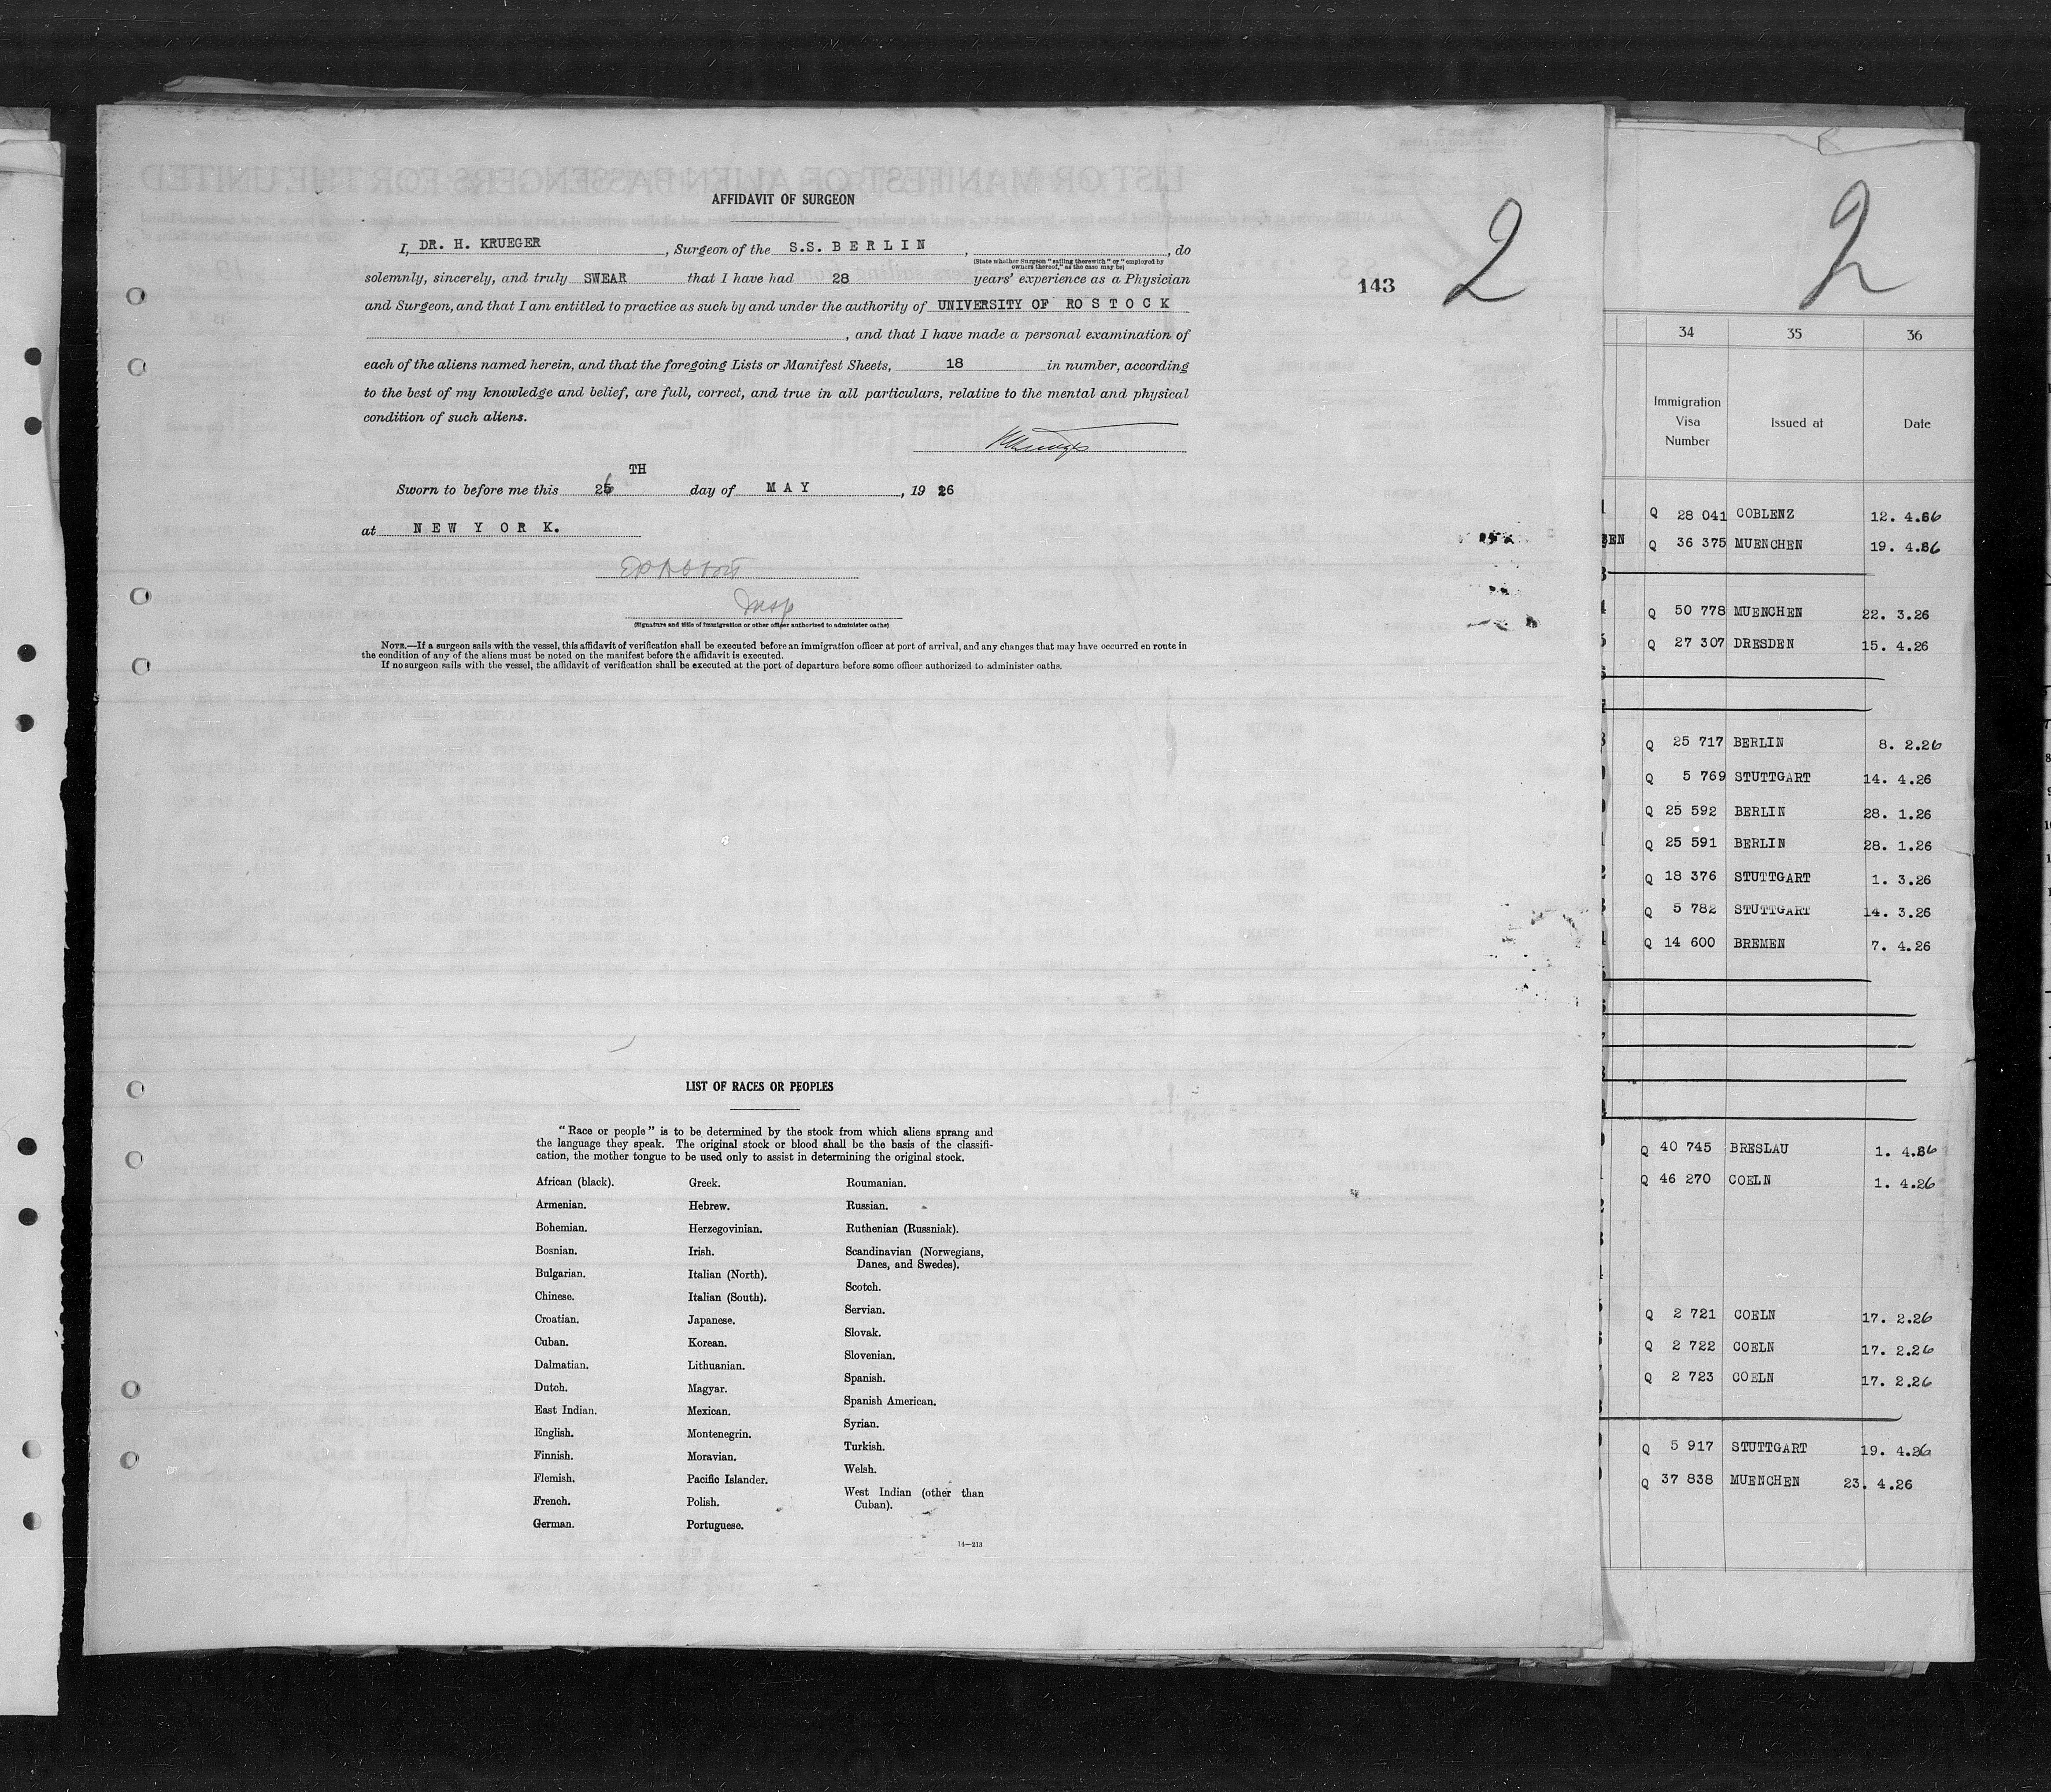 AFFIDAVIT OF SURGEON
I, DR. H. KRUEGER, Surgeon of the S.S. B E R L I N, , do
(State whether Surgeon "sailing therewith" or "employed by
owners thereof," as the case may be)
solemnly, sincerely, and truly SWEAR that I have had 28 years' experience as a Physician
and Surgeon, and that I am entitled to practice as such by and under the authority of UNIVERSITY OF RO S T O C K
, and that I have made a personal examination of
each of the aliens named herein, and that the foregoing Lists or Manifest Sheets, 18 in number, according
to the best of my knowledge and belief, are full, correct, and true in all particulars, relative to the mental and physical
condition of such aliens.
TH
Sworn to before me this 26 day of M A Y, 19 26
at N E W Y O R K.
Insp
(Signature and title of immigration or other officer authorized to administer oaths)
NOTE.—If a surgeon sails with the vessel, this affidavit of verification shall be executed before an immigration officer at port of arrival, and any changes that may have occurred en route in
the condition of any of the aliens must be noted on the manifest before the affidavit is executed.
If no surgeon sails with the vessel, the affidavit of verification shall be executed at the port of departure before some officer authorized to administer oaths.
143
2
LIST OF RACES OR PEOPLES
"Race or people" is to be determined by the stock from which aliens sprang and
the language they speak. The original stock or blood shall be the basis of the classifi-
cation, the mother tongue to be used only to assist in determining the original stock.
African (black).
Armenian.
Bohemian.
Bosnian.
Bulgarian.
Chinese.
Croatian.
Cuban.
Dalmatian.
Dutch.
East Indian.
English.
Finnish.
Flemish.
French.
German.
Greek.
Hebrew.
Herzegovinian.
Irish.
Italian (North).
Italian (South).
Japanese.
Korean.
Lithuanian.
Magyar.
Mexican.
Montenegrin.
Moravian.
Pacific Islander.
Polish.
Portuguese.
Roumanian.
Russian.
Ruthenian (Russniak).
Scandinavian (Norwegians,
Danes, and Swedes).
Scotch.
Servian.
Slovak.
Slovenian.
Spanish.
Spanish American.
Syrian.
Turkish.
Welsh.
West Indian (other than
Cuban).
14—213
2
34 35 36
Immigration Visa Number Issued at Date
Q 28 041 COBLENZ 12. 4.26
BEN Q 36 375 MUENCHEN 19. 4.26
Q 50 778 MUENCHEN 22. 3.26
Q 27 307 DRESDEN 15. 4.26
Q 25 717 BERLIN 8. 2.26
Q 5 769 STUTTGART 14. 4.26
Q 25 592 BERLIN 28. 1.26
Q 25 591 BERLIN 28. 1.26
Q 18 376 STUTTGART 1. 3.26
Q 5 782 STUTTGART 14. 3.26
Q 14 600 BREMEN 7. 4.26
Q 40 745 BRESLAU 1. 4.26
Q 46 270 COELN 1. 4.26
Q 2 721 COELN 17. 2.26
Q 2 722 COELN 17. 2.26
Q 2 723 COELN 17. 2.26
Q 5 917 STUTTGART 19. 4.26
Q 37 838 MUENCHEN 23. 4.26